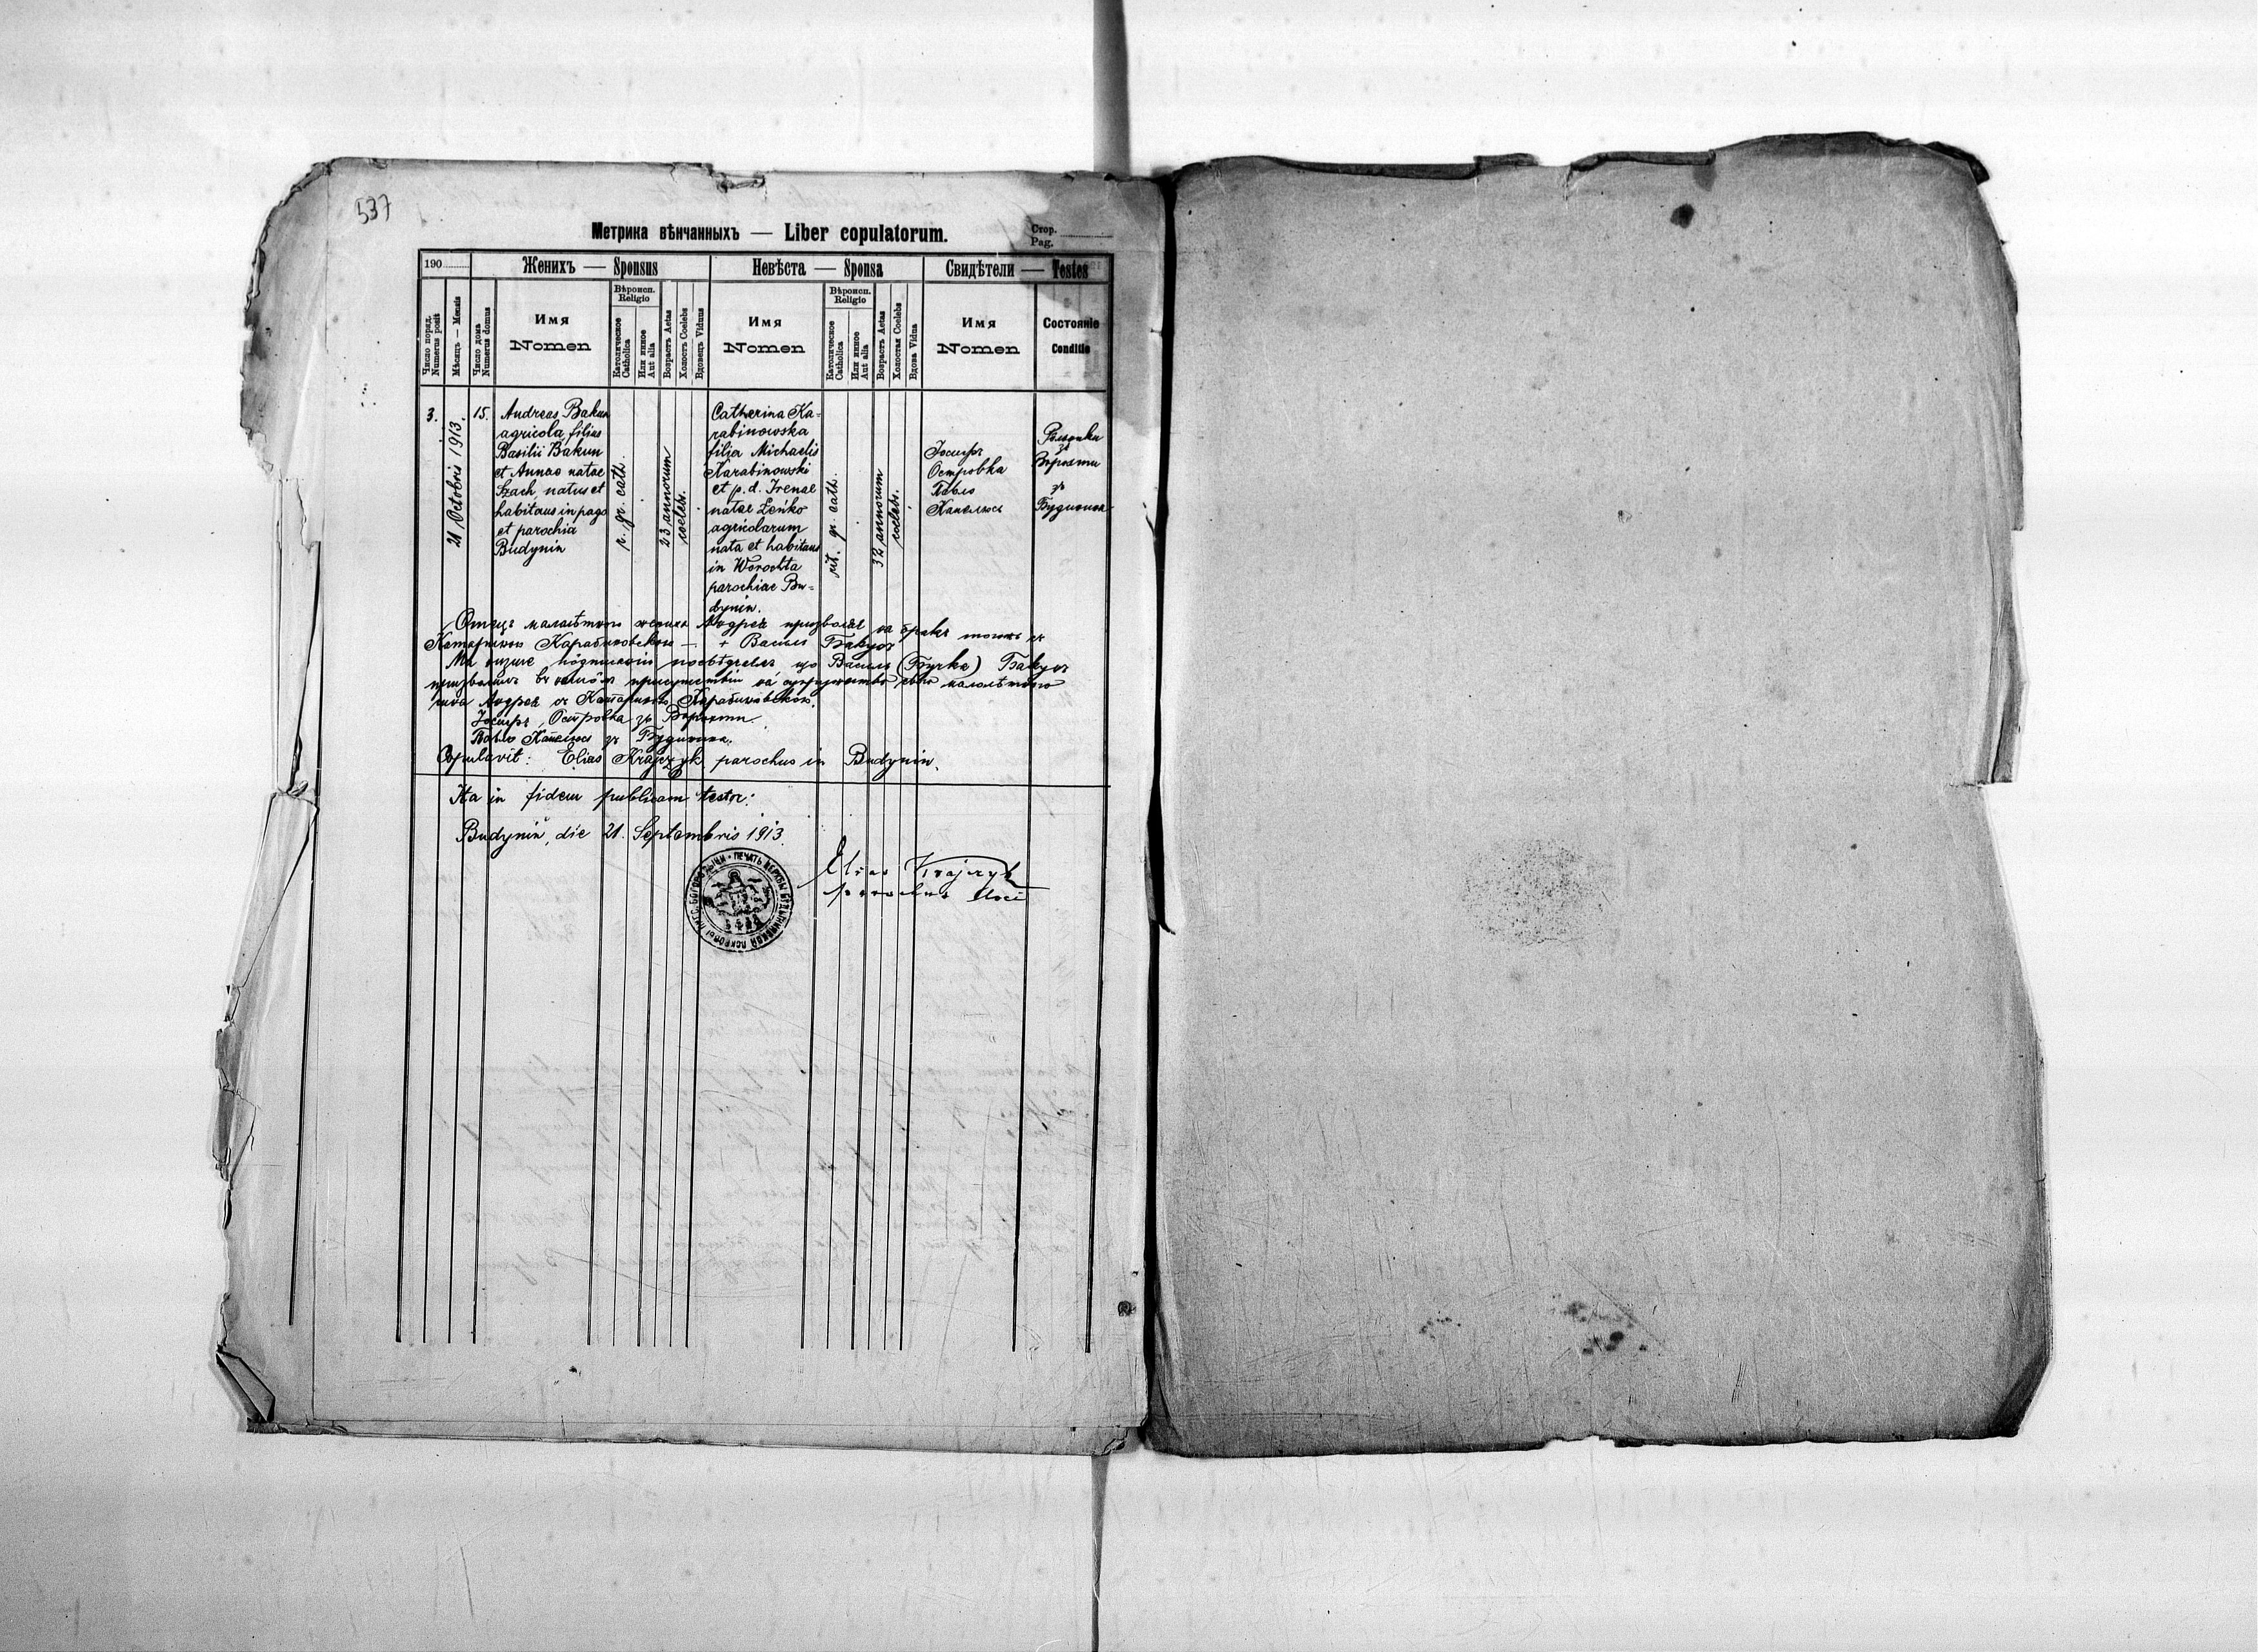 537
Метрика вѣнчанныхъ — Liber copulatorum.
Стор.
Pag.
190
Женихъ — Sponsus
Невѣста — Sponsa
Свидѣтели — Testes
Число поряд.
Numerus posit
Мѣсяцъ — Mensis
Число дома
Numerus domus
Имя
Nomen
Вѣроисп.
Religio
Католическое
Catholica
Или иное
Aut alia
Возрастъ Aetas
Холостъ Coelebs
Вдовецъ Viduus
Имя
Nomen
Вѣроисп.
Religio
Католическое
Catholica
Или иное
Aut alia
Возрастъ Aetas
Холостая Coelebs
Вдова Vidua
Имя
Nomen
Состоянiе
Conditio
3.
21 Octobris 1913.
15.
Andreas Bakun
agricola, filius
Basilii Bakun
et Annae natae
Szach, natus et
habitans in pago
et parochia
Budynin
r. gr. cath.
23 annorum
coelebs.
Catherina Ka=
rabinowska
filia Michaelis
Karabinowski
et p. d. Irenae
natae Leńko
agricolarum
nata et habitans
in Worochta
parochiae Bu=
dynin.
rit. gr. cath.
32 annorum
coelebs.
Іосифъ
Островка
Павло
Капелюсъ
зъ
Ворохти
зъ
Будинина
Отецъ малолѣтного жениха Андрея призволяє на бракъ тогожъ съ
Катариною Карабиновскою — + Василь Бакунъ
Мы низше подписаніи посвѣдчаемъ що Василь (Бучка) Бакунъ
призволилъ въ нашôмъ присутствіи на супружество свого малолѣтного
сына Андрея съ Катариною Карабиновскою.
Іосифъ Островка зъ Ворохти
Павло Капелюсъ зъ Будинина.
Copulavit: Elias Krajczyk parochus in Budynin.
Ita in fidem publicam testor:
Budynin, die 21. Septembris 1913.
Elias Krajczyk
parochus loci